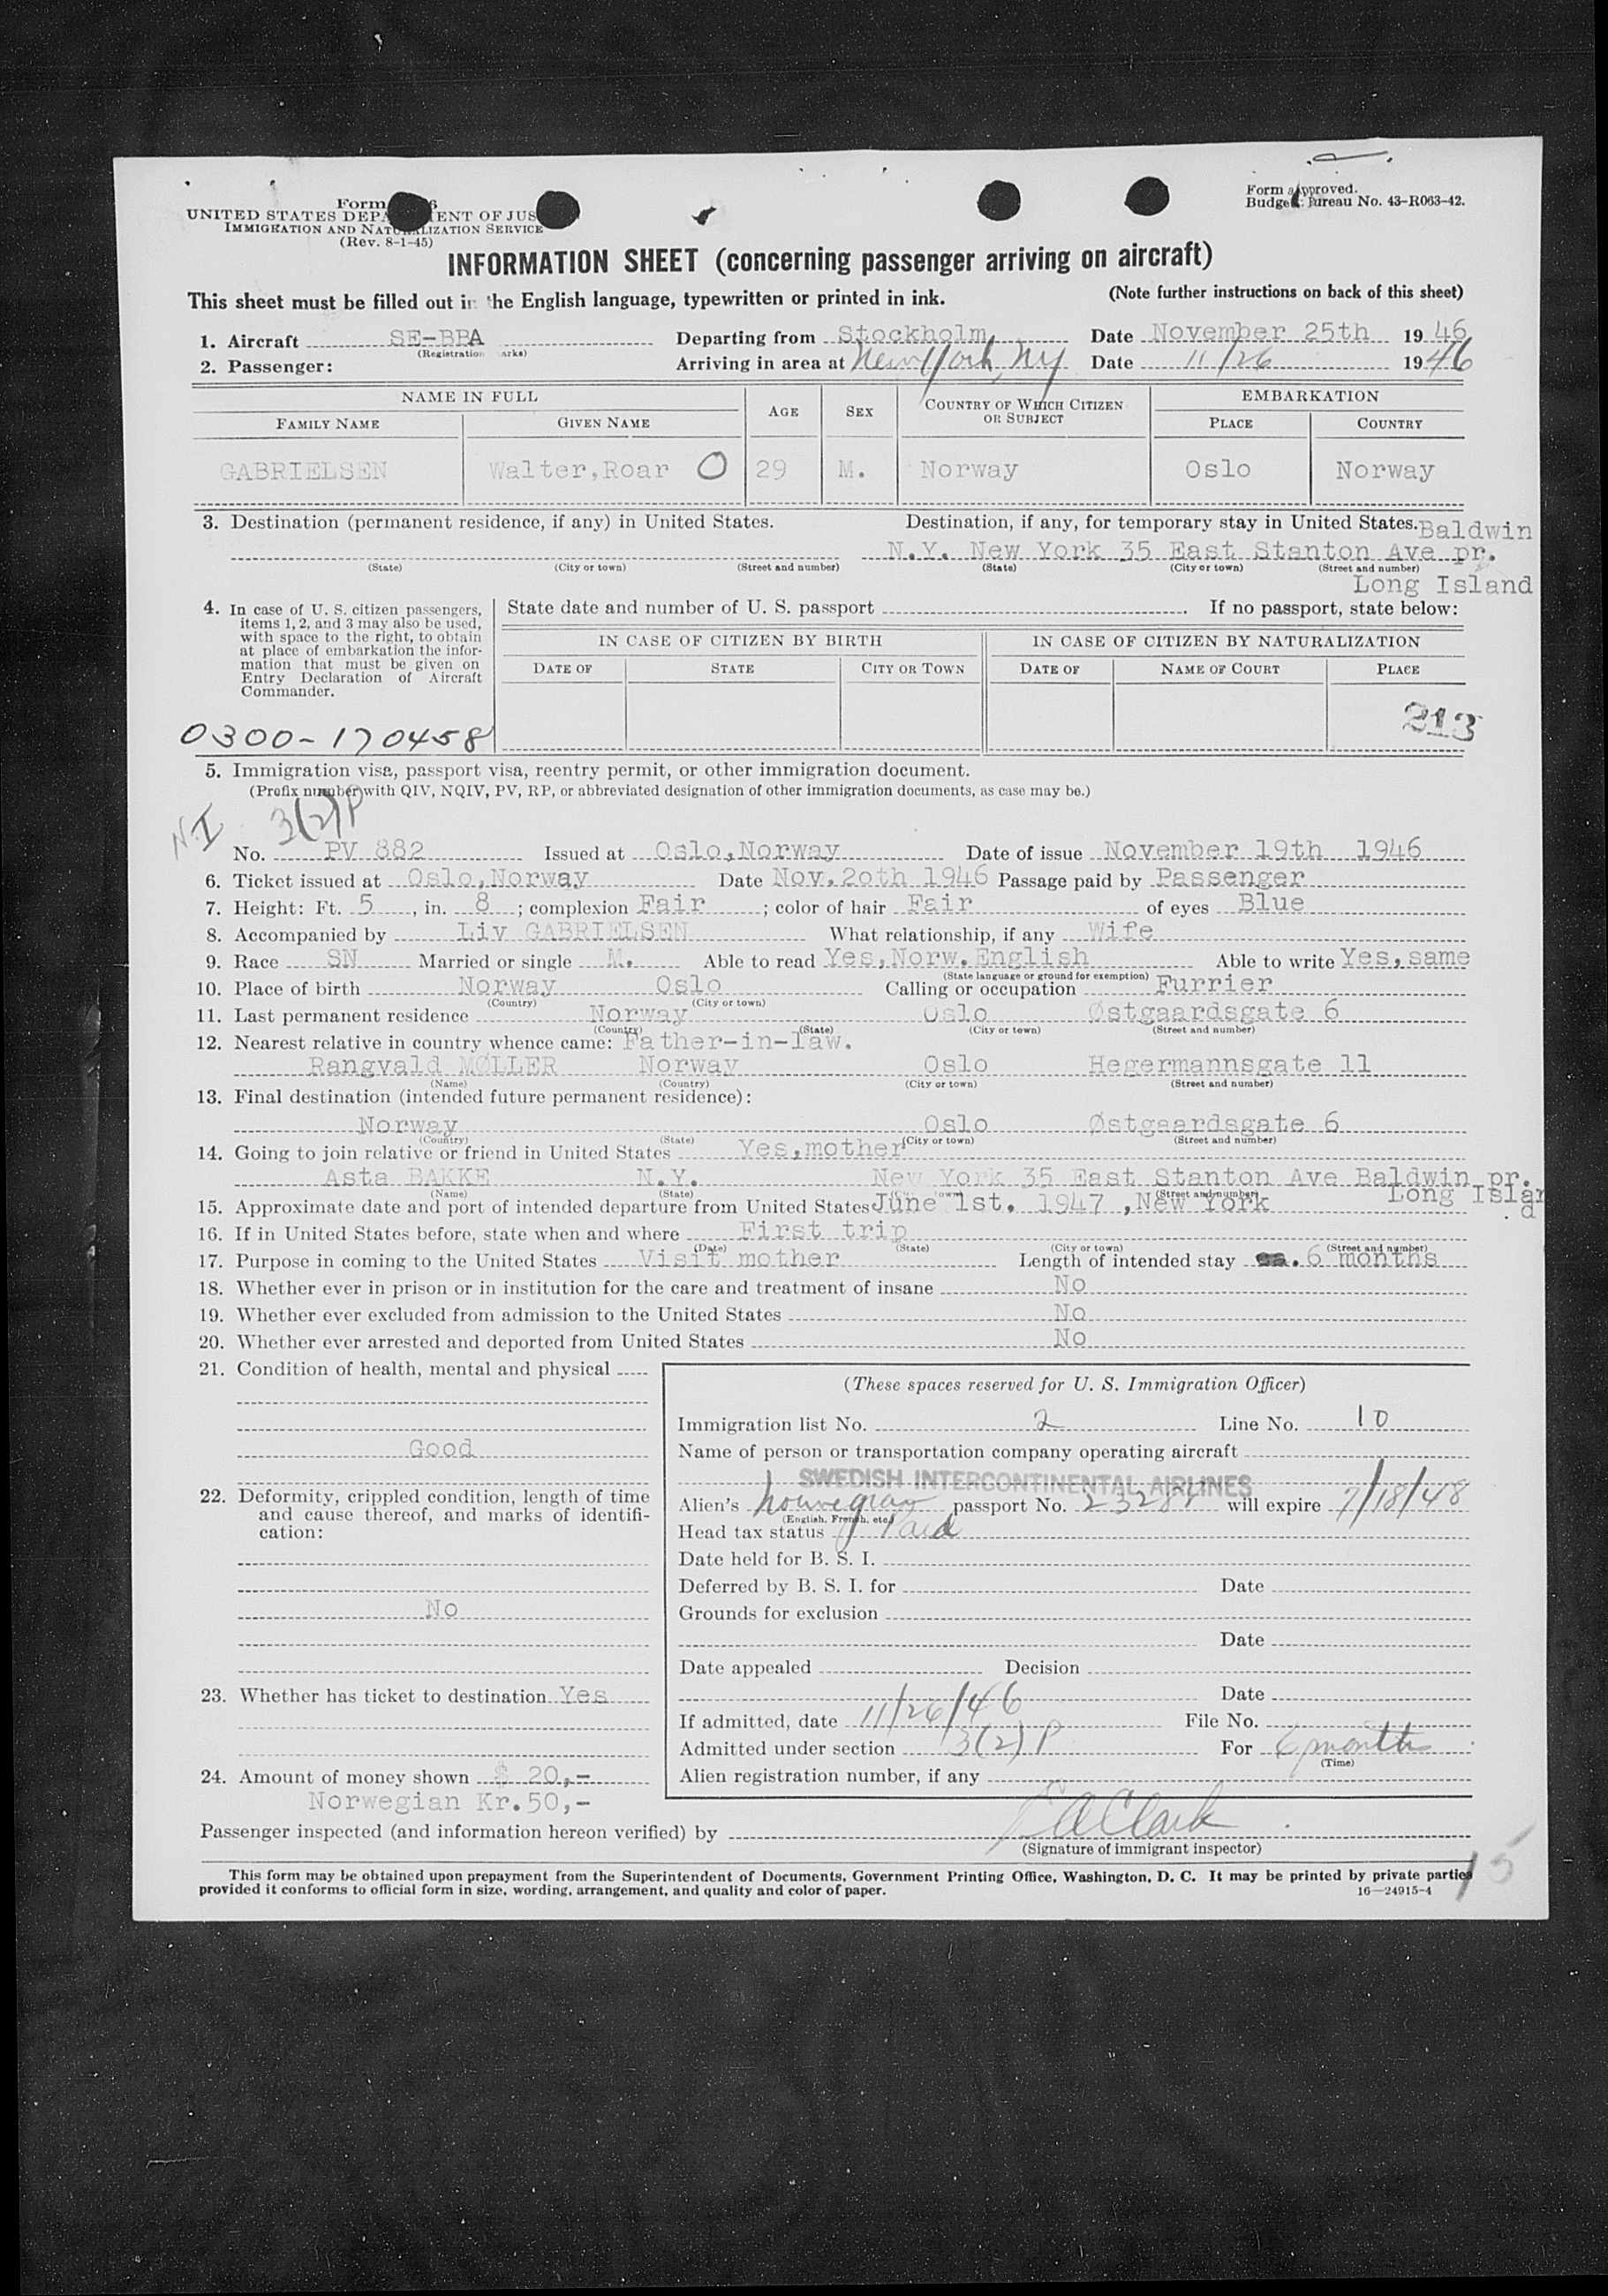 Form
UNITED STATES DEPA ENT OF JUS
IMMIGRATION AND NATURALIZATION SERVICE
(Rev. 8-1-45)
Form approved.
Budget Bureau No. 43-R063-42.
INFORMATION SHEET (concerning passenger arriving on aircraft)
This sheet must be filled out in the English language, typewritten or printed in ink.
(Note further instructions on back of this sheet)
1. Aircraft SE-BBA Departing from Stockholm Date November 25th 1946
(Registration marks)
2. Passenger: Arriving in area at New York, NY Date 11/26 1946
NAME IN FULL AGE SEX COUNTRY OF WHICH CITIZEN OR SUBJECT EMBARKATION
FAMILY NAME GIVEN NAME PLACE COUNTRY
GABRIELSEN Walter,Roar O 29 M. Norway Oslo Norway
3. Destination (permanent residence, if any) in United States. Destination, if any, for temporary stay in United States. Baldwin
N.Y. New York 35 East Stanton Ave pr.
(State) (City or town) (Street and number) (State) (City or town) (Street and number)
Long Island
4. In case of U. S. citizen passengers,
items 1, 2, and 3 may also be used,
with space to the right, to obtain
at place of embarkation the infor-
mation that must be given on
Entry Declaration of Aircraft
Commander.
State date and number of U. S. passport . If no passport, state below:
IN CASE OF CITIZEN BY BIRTH IN CASE OF CITIZEN BY NATURALIZATION
DATE OF STATE CITY OR TOWN DATE OF NAME OF COURT PLACE
213
0300-170458
5. Immigration visa, passport visa, reentry permit, or other immigration document.
(Prefix number with QIV, NQIV, PV, RP, or abbreviated designation of other immigration documents, as case may be.)
N.I 3(2)P
No. PV 882 Issued at Oslo,Norway Date of issue November 19th 1946
6. Ticket issued at Oslo,Norway Date Nov.20th 1946 Passage paid by Passenger
7. Height: Ft. 5, in. 8; complexion Fair; color of hair Fair of eyes Blue
8. Accompanied by Liv GABRIELSEN What relationship, if any Wife
9. Race SN Married or single M. Able to read Yes,Norw.English Able to write Yes,same
(State language or ground for exemption)
10. Place of birth Norway Oslo Calling or occupation Furrier
(Country) (City or town)
11. Last permanent residence Norway Oslo Østgaardsgate 6
(Country) (State) (City or town) (Street and number)
12. Nearest relative in country whence came: Father-in-law.
Rangvald MØLLER Norway Oslo Hegermannsgate 11
(Name) (Country) (City or town) (Street and number)
13. Final destination (intended future permanent residence):
Norway Oslo Østgaardsgate 6
(Country) (State) (City or town) (Street and number)
14. Going to join relative or friend in United States Yes,mother
Asta BAKKE N.Y. New York 35 East Stanton Ave Baldwin pr.
(Name) (State) (Street and number) Long Island
15. Approximate date and port of intended departure from United States June 1st. 1947 ,New York
16. If in United States before, state when and where First trip
(Date) (State) (City or town) (Street and number)
17. Purpose in coming to the United States Visit mother Length of intended stay ca. 6 months
18. Whether ever in prison or in institution for the care and treatment of insane No
19. Whether ever excluded from admission to the United States No
20. Whether ever arrested and deported from United States No
21. Condition of health, mental and physical
Good
22. Deformity, crippled condition, length of time
and cause thereof, and marks of identifi-
cation:
No
23. Whether has ticket to destination Yes
24. Amount of money shown $ 20,-
Norwegian Kr.50,-
(These spaces reserved for U. S. Immigration Officer)
Immigration list No. 2 Line No. 10
Name of person or transportation company operating aircraft
SWEDISH INTERCONTINENTAL AIRLINES
Alien's passport No. will expire 7/18/48
(English, French, etc.)
Head tax status Paid
Date held for B. S. I.
Deferred by B. S. I. for Date
Grounds for exclusion
Date
Date appealed Decision
Date
If admitted, date 11/26/46 File No.
Admitted under section 3(2)P For 6 months
(Time)
Alien registration number, if any
Passenger inspected (and information hereon verified) by Clark
(Signature of immigrant inspector)
This form may be obtained upon prepayment from the Superintendent of Documents, Government Printing Office, Washington, D. C. It may be printed by private parties
provided it conforms to official form in size, wording, arrangement, and quality and color of paper.
16—24915-4
15